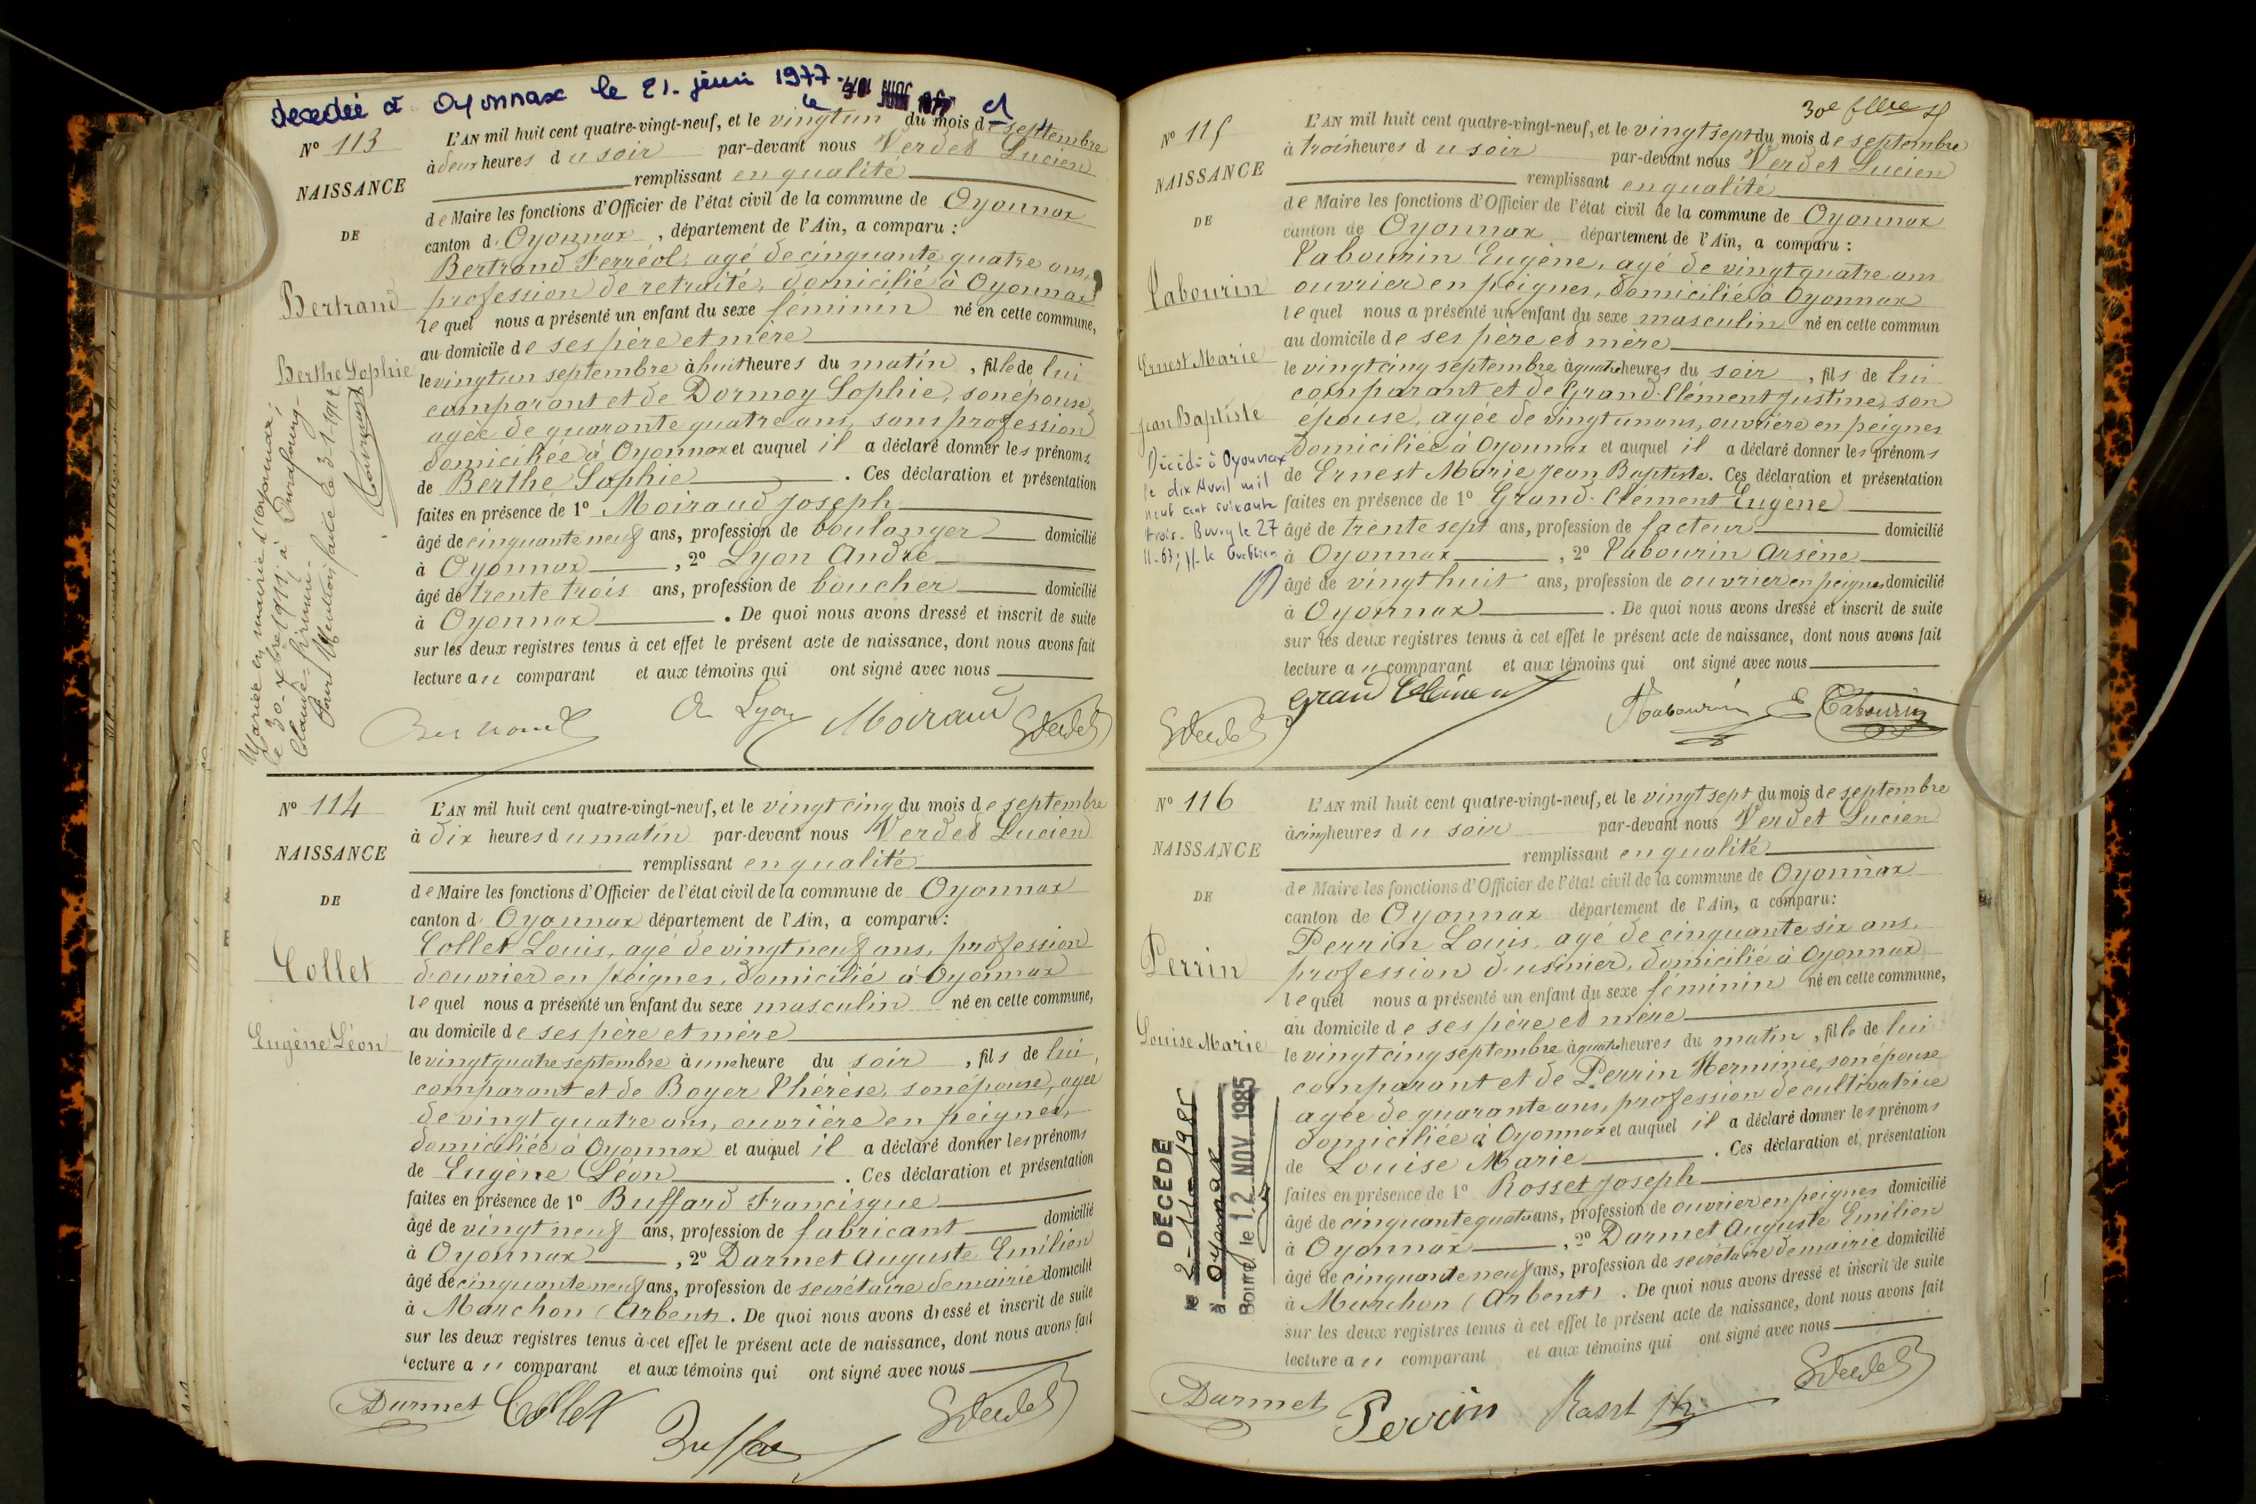 decedée à Oyonnax le 21. juin 1977.
le
N° 113
NAISSANCE
DE
Bertrand
Berthe Sophie
Mariée en mairie d'Oyonnax,
le 30. 1911, à
Claude Firmin.
Pour Mention faite le 3-1-
L'AN mil huit cent quatre-vingt-neuf, et le vingt un du mois de septembre
à deux heures du soir par-devant nous Verdet Lucien
remplissant en qualité
de Maire les fonctions d'Officier de l'état civil de la commune de Oyonnax
canton d' Oyonnax, département de l'Ain, a comparu :
Bertrand Ferréol, agé de cinquante quatre ans,
profession de retraité, domicilié à Oyonnax
lequel nous a présenté un enfant du sexe féminin né en cette commune,
au domicile de ses père et mère
le vingt un septembre à huit heures du matin, fille de lui
comparant et de Dormoy Sophie, son épouse,
agée de quarante quatre ans, sans profession
domiciliée à Oyonnax et auquel il a déclaré donner les prénoms
de Berthe Sophie. Ces déclaration et présentation
faites en présence de 1° Moiraud Joseph
âgé de cinquante neuf ans, profession de boulanger domicilié
à Oyonnax, 2° Lyon André
âgé de trente trois ans, profession de boucher domicilié
à Oyonnax. De quoi nous avons dressé et inscrit de suite
sur les deux registres tenus à cet effet le présent acte de naissance, dont nous avons fait
lecture au comparant et aux témoins qui ont signé avec nous
Bertrand A Lyon Moiraud Verdet
N° 114
NAISSANCE
DE
Collet
Eugène Léon
L'AN mil huit cent quatre-vingt-neuf, et le vingt cinq du mois de septembre
à dix heures du matin par-devant nous Verdet Lucien
remplissant en qualité
de Maire les fonctions d'Officier de l'état civil de la commune de Oyonnax
canton d' Oyonnax département de l'Ain, a comparu :
Collet Louis, agé de vingt neuf ans, profession
d'ouvrier en peignes, domicilié à Oyonnax
lequel nous a présenté un enfant du sexe masculin né en cette commune,
au domicile de ses père et mère
le vingt quatre septembre à une heure du soir, fils de lui,
comparant et de Boyer Thérèse, son épouse, agée
de vingt quatre ans, ouvrière en peignes,
domiciliée à Oyonnax et auquel il a déclaré donner les prénoms
de Eugène Léon. Ces déclaration et présentation
faites en présence de 1° Buffard Francisque
âgé de vingt neuf ans, profession de fabricant domicilié
à Oyonnax, 2° Darmet Auguste Emilien
âgé de cinquante neuf ans, profession de secrétaire de mairie domicilié
à Marchon (Arbent). De quoi nous avons dressé et inscrit de suite
sur les deux registres tenus à cet effet le présent acte de naissance, dont nous avons fait
lecture au comparant et aux témoins qui ont signé avec nous
Darmet Collet Verdet
N° 115
NAISSANCE
DE
Tabourin
Ernest Marie
Jean Baptiste
Décédé à Oyonnax
le dix Avril mil
neuf cent soixante
trois. Bourg le 27
11-63; Pr. le Greffier
L'AN mil huit cent quatre-vingt-neuf, et le vingt sept du mois de septembre
à trois heures du soir par-devant nous Verdet Lucien
remplissant en qualité
de Maire les fonctions d'Officier de l'état civil de la commune de Oyonnax
canton de Oyonnax département de l'Ain, a comparu :
Tabourin Eugène, agé de vingt quatre ans
ouvrier en peignes, domicilié à Oyonnax
lequel nous a présenté un enfant du sexe masculin né en cette commun
au domicile de ses père et mère
le vingt cinq septembre à quatre heures du soir, fils de lui
comparant et de Grand-Clément Justine, son
épouse, agée de vingt un ans, ouvrière en peignes
domiciliée à Oyonnax et auquel il a déclaré donner les prénoms
de Ernest Marie Jean Baptiste. Ces déclaration et présentation
faites en présence de 1° Grand-Clément Eugène
âgé de trente sept ans, profession de facteur domicilié
à Oyonnax, 2° Tabourin Arsène
âgé de vingt huit ans, profession de ouvrier en peignes domicilié
à Oyonnax. De quoi nous avons dressé et inscrit de suite
sur les deux registres tenus à cet effet le présent acte de naissance, dont nous avons fait
lecture au comparant et aux témoins qui ont signé avec nous
Verdet Grand Clément Tabourin E Tabourin
N° 116
NAISSANCE
DE
Perrin
Louise Marie
DÉCÉDÉ
le 2-11-1985
à Oyonnax
Bourg le 12 NOV. 1985
L'AN mil huit cent quatre-vingt-neuf, et le vingt sept du mois de septembre
à cinq heures du soir par-devant nous Verdet Lucien
remplissant en qualité
de Maire les fonctions d'Officier de l'état civil de la commune de Oyonnax
canton de Oyonnax département de l'Ain, a comparu :
Perrin Louis, agé de cinquante six ans,
profession d'usinier, domicilié à Oyonnax
lequel nous a présenté un enfant du sexe féminin né en cette commune,
au domicile de ses père et mère
le vingt cinq septembre à quatre heures du matin, fille de lui
comparant et de Perrin Herminie, son épouse
agée de quarante ans, profession de cultivatrice
domiciliée à Oyonnax et auquel il a déclaré donner les prénoms
de Louise Marie. Ces déclaration et présentation
faites en présence de 1° Rosset Joseph
âgé de cinquante quatre ans, profession de ouvrier en peignes domicilié
à Oyonnax, 2° Darmet Auguste Emilien
âgé de cinquante neuf ans, profession de secrétaire de mairie domicilié
à Marchon (Arbent). De quoi nous avons dressé et inscrit de suite
sur les deux registres tenus à cet effet le présent acte de naissance, dont nous avons fait
lecture au comparant et aux témoins qui ont signé avec nous
Darmet Perrin Verdet